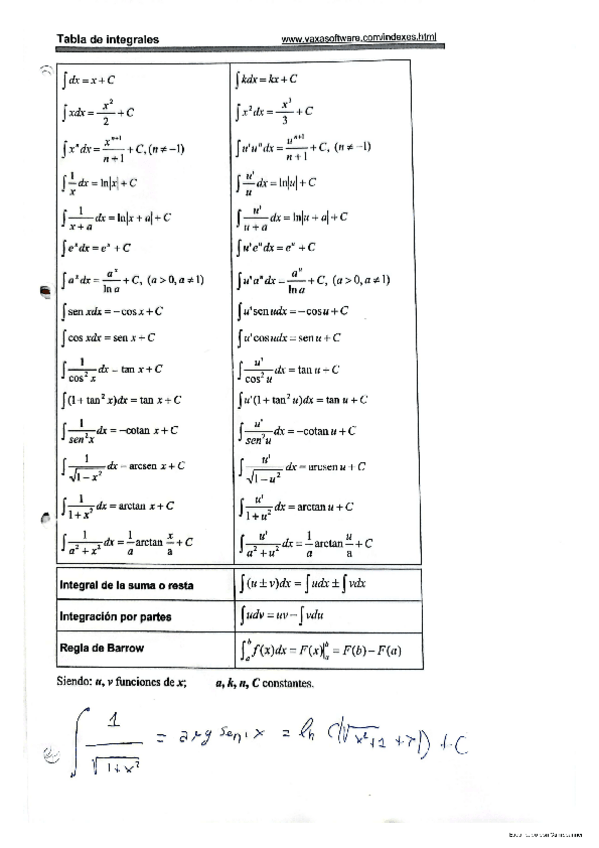 Tabla de integrales www.vaxasoftware.com/indexes.html
∫dx = x + C ∫kdx = kx + C
∫xdx = x²/2 + C ∫x²dx = x³/3 + C
∫xⁿdx = xⁿ⁺¹/(n+1) + C, (n ≠ −1) ∫u'uⁿdx = uⁿ⁺¹/(n+1) + C, (n ≠ −1)
∫1/x dx = ln|x| + C ∫u'/u dx = ln|u| + C
∫1/(x+a) dx = ln|x + a| + C ∫u'/(u+a) dx = ln|u + a| + C
∫eˣdx = eˣ + C ∫u'eᵘdx = eᵘ + C
∫aˣdx = aˣ/ln a + C, (a > 0, a ≠ 1) ∫u'aᵘdx = aᵘ/ln a + C, (a > 0, a ≠ 1)
∫sen xdx = −cos x + C ∫u'sen udx = −cos u + C
∫cos xdx = sen x + C ∫u'cos udx = sen u + C
∫1/cos²x dx = tan x + C ∫u'/cos²u dx = tan u + C
∫(1 + tan²x)dx = tan x + C ∫u'(1 + tan²u)dx = tan u + C
∫1/sen²x dx = −cotan x + C ∫u'/sen²u dx = −cotan u + C
∫1/√(1−x²) dx = arcsen x + C ∫u'/√(1−u²) dx = arcsen u + C
∫1/(1+x²) dx = arctan x + C ∫u'/(1+u²) dx = arctan u + C
∫1/(a²+x²) dx = 1/a arctan x/a + C ∫u'/(a²+u²) dx = 1/a arctan u/a + C
Integral de la suma o resta ∫(u ± v)dx = ∫udx ± ∫vdx
Integración por partes ∫udv = uv − ∫vdu
Regla de Barrow ∫ₐᵇ f(x)dx = F(x)|ₐᵇ = F(b) − F(a)
Siendo: u, v funciones de x; a, k, n, C constantes.
∫ 1/√(1+x²) = arg sen x = ln + C